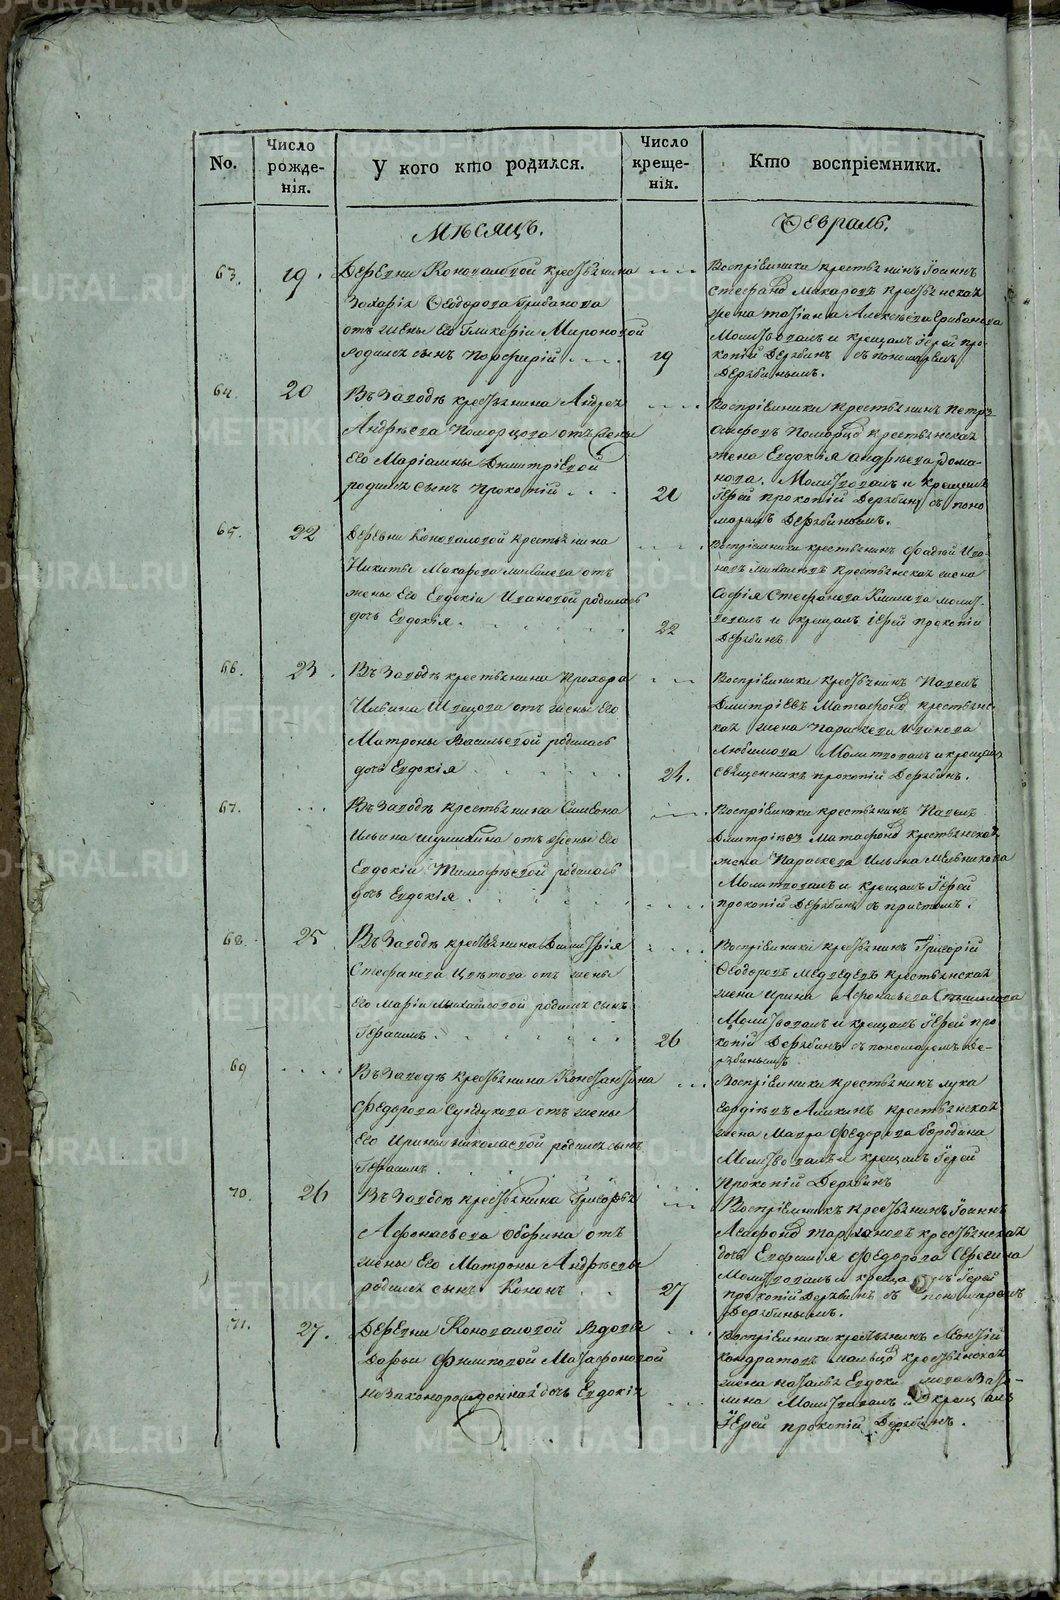 No.
Число рожде-нія.
У кого кто родился.
Число креще-нія.
Кто воспріемники.
Мѣсяцъ.
Февраль.
63. 19.
Деревни Коноваловой крестьянина
Захаріи Феодорова Грибанова
отъ жены его Гликеріи Мироновой
родился сынъ Порфирій
19
Воспріемники крестьянинъ Іоаннъ
Стефановъ Макаровъ крестьянская
жена Татіана Алексѣева Грибанова
Молитвовалъ и крещалъ Іерей Про-
копій Дерябинъ съ пономаремъ
Дерябинымъ.
64. 20
Въ Заводѣ крестьянина Андрея
Андрѣева Поморцова отъ жены
его Маріамны Димитріевой
родился сынъ Прокопій
21
Воспріемники крестьянинъ Петръ
Поморцовъ крестьянская
жена Евдокія Андрѣева
Молитвовалъ и крещалъ
Іерей Прокопій Дерябинъ съ поно
маремъ Дерябинымъ.
65. 22
Деревни Коноваловой крестьянина
Никиты Макарова отъ
жены его Евдокіи Ивановой родилась
дочь Евдокія.
22
Воспріемники крестьянинъ Фадѣй Ива-
новъ крестьянская жена
Софія Стефанова молит-
вовалъ и крещалъ іерей Прокопій
Дерябинъ
66. 23.
Въ Заводѣ крестьянина Прохора
Ильина Швецова отъ жены его
Матроны Васильевой родилась
дочь Евдокія
24.
Воспріемники крестьянинъ Павелъ
Дмитріевъ Матафоновъ крестьянс-
кая жена Параскева Иванова
Любимова Молитвовалъ и крещалъ
священникъ Прокопій Дерябинъ.
67.
Въ Заводѣ крестьянина Симеона
Ильина отъ жены его
Евдокіи Тимофѣевой родилась
дочь Евдокія
Воспріемники крестьянинъ Павелъ
Дмитріевъ Матафоновъ крестьянская
жена Параскева Ильина Мельникова
Молитвовалъ и крещалъ Іерей
Прокопій Дерябинъ съ причтомъ.
68. 25
Въ Заводѣ крестьянина Димитрія
Стефанова отъ жены
его Маріи Михайловой родился сынъ
Герасимъ.
26
Воспріемники крестьянинъ Григорій
Феодоровъ Медведевъ крестьянская
жена Ирина Афонасьева
Молитвовалъ и крещалъ Іерей Про
копій Дерябинъ съ пономаремъ Де-
рябинымъ
69
Въ Заводѣ крестьянина Константина
Федорова Сундукова отъ жены
его Ирины Николаевой родился сынъ
Герасимъ
Воспріемники крестьянинъ Лука
крестьянская
жена Мавра Федорова Бородина
Молитвовалъ и крещалъ Іерей
Прокопій Дерябинъ
70. 26
Въ Заводѣ крестьянина Григорья
Афонасьева Оборина отъ
жены его Матроны Андрѣевы
родился сынъ Кононъ
27
Воспріемникъ крестьянинъ Іоаннъ
крестьянская
дочь Евфимія Федорова
Молитвовалъ и крещалъ Іерей
Прокопій Дерябинъ съ пономаремъ
Дерябинымъ.
71. 27.
Деревни Коноваловой вдовы
Дарьи Филиповой Матафоновой
незаконорожденная дочь Евдокія
Воспріемники крестьянинъ
Кондратовъ крестьянская
жена
Молитвовалъ и крещалъ
Іерей Прокопій Дерябинъ.
METRIKI.GASO-URAL.RU